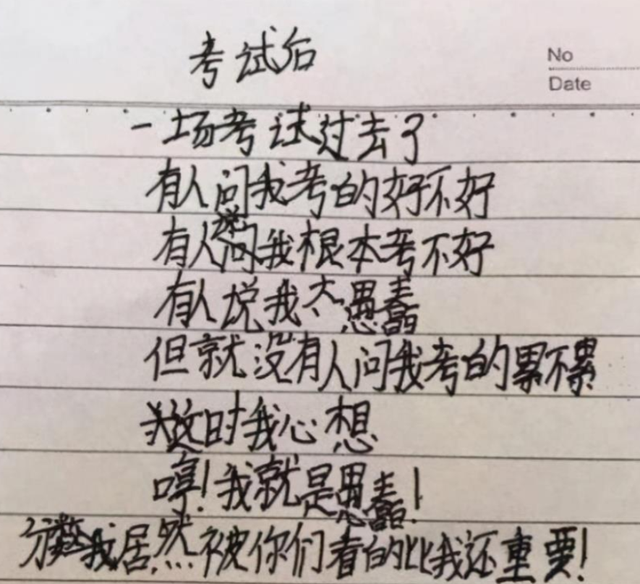 考试后
No
Date
一场考试过去了
有人问我考的好不好
有人说我根本考不好
有人说我太愚蠢
但就没有人问我考的累不累
这时我心想
哼!我就是愚蠢!
分数我居然...被你们看的比我还重要!